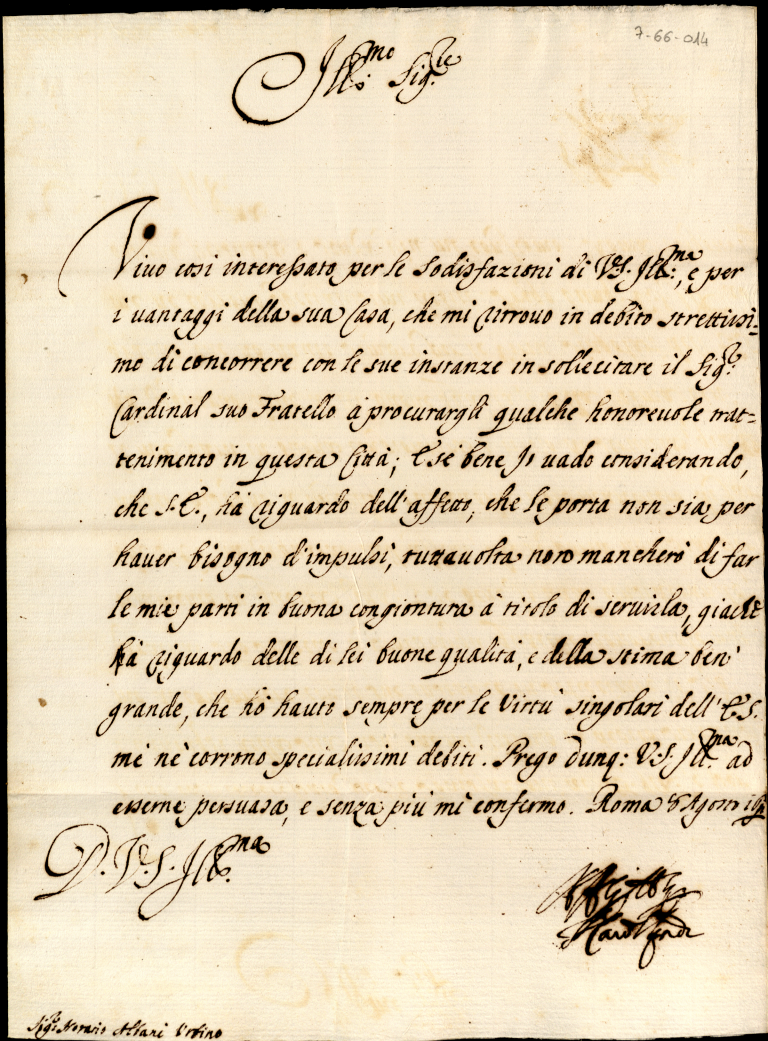 7-66-014
Ill.mo Sig.re
Vivo così interessato per le sodisfazioni di V.S. Ill.ma, e per
i vantaggi della sua Casa, che mi ritrovo in debito strettissi=
mo di concorrere con le sue instanze in sollecitare il Sig.r
Cardinal suo Fratello à procurargli qualche honorevole trat=
tenimento in questa Città; E se bene Io vado considerando,
che S.E., hà riguardo dell'affetto, che le porta non sia per
haver bisogno d'impulsi, tuttavolta non mancherò di far
le mie parti in buona congiontura à titolo di servirla, giache
hà riguardo delle di lei buone qualità, e della stima ben'
grande, che hò hauto sempre per le Virtù singolari dell'E.S.
mè nè corrono specialissimi debiti. Prego dunq: V.S. Ill.ma ad
esserne persuasa, e senza più mi confermo. Roma Agosto
D. V.S. Ill.ma
Sig.r Horatio Albani Urbino